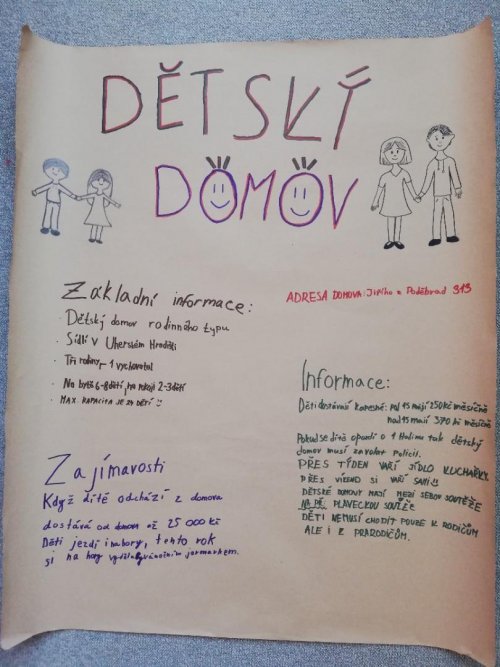 DĚTSKÝ
DOMOV
Základní informace:
· Dětský domov rodinného typu
· Sídlí v Uherském Hradišti
· Tři rodiny - 1 vychovatel
· Na bytě 6-8 dětí, na pokoji 2-3 dětí
· MAX KAPACITA JE 24 DĚTÍ
Zajímavosti
Když dítě odchází z domova
dostává od domova až 25 000 Kč
Děti jezdí i na hory, tento rok
si na hory vydělaly vánočním jarmarkem.
ADRESA DOMOVA: Jiřího z Poděbrad 313
Informace:
Děti dostávají kapesné: pod 15 mají 250 Kč měsíčně
nad 15 mají 370 Kč měsíčně
Pokud se dítě opozdí o 1 hodinu tak dětský
domov musí zavolat policii.
PŘES TÝDEN VAŘÍ JÍDLO KUCHAŘKY.
PŘES VÍKEND SI VAŘÍ SAMI
DĚTSKÉ DOMOVY MAJÍ MEZI SEBOU SOUTĚŽE
NA PŘ. PLAVECKOU SOUTĚŽ
DĚTI NEMUSÍ CHODIT POUZE K RODIČŮM
ALE I K PRARODIČŮM.